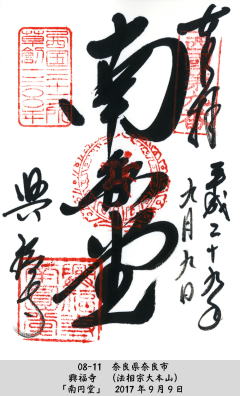 奉拝
平成二十九年
九月九日
南円堂
興福寺
西国三十三所
草創1300年
08-11 奈良県奈良市
興福寺 (法相宗大本山)
「南円堂」 2017年9月9日